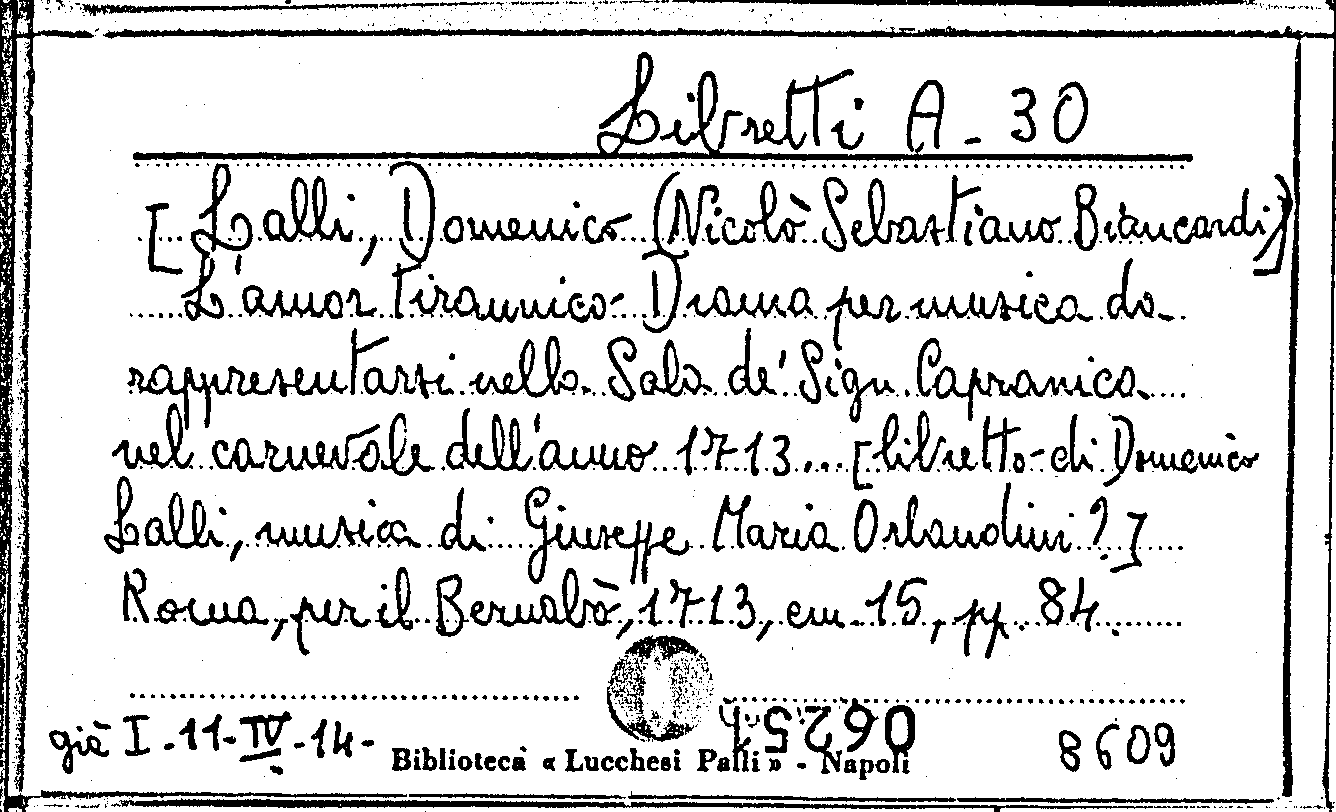 Libretti A - 30
[Lalli, Domenico (Nicolò Sebastiano Biancardi)]
L'amor tirannico - Drama per musica da
rappresentarsi nella Sala de' Sign. Capranica
nel carnevale dell'anno 1713... [libretto di Domenico
Lalli, musica di Giuseppe Maria Orlandini?]
Roma, per il Bernabò, 1713, cm. 15, pp. 84.
già I-11-IV-14-
Biblioteca « Lucchesi Palli » - Napoli
8609